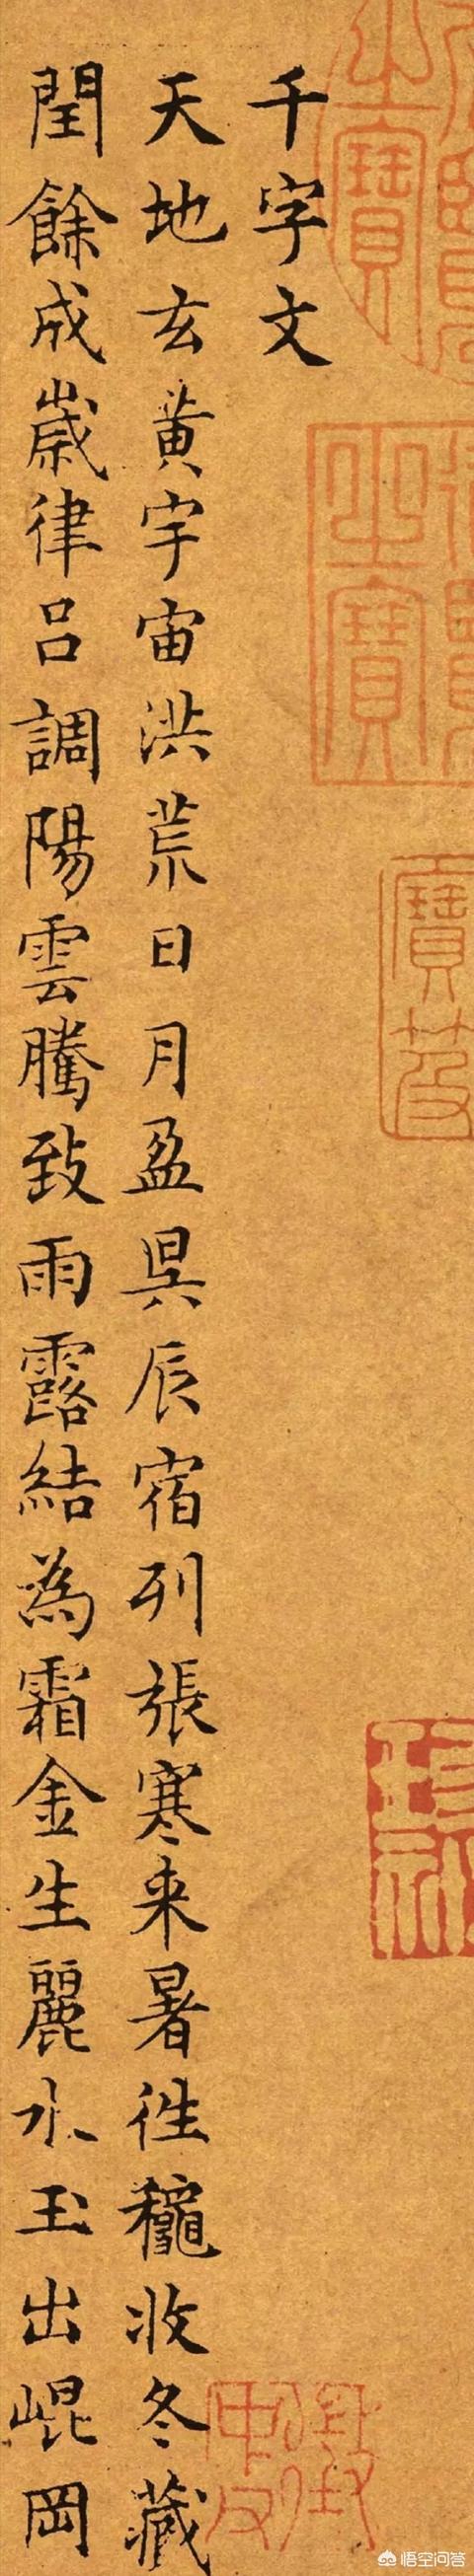 千字文
天地玄黃宇宙洪荒日月盈昃辰宿列張寒来暑往龝收冬藏
閏餘成歲律吕調陽雲騰致雨露結為霜金生麗水玉出崐岡
悟空问答